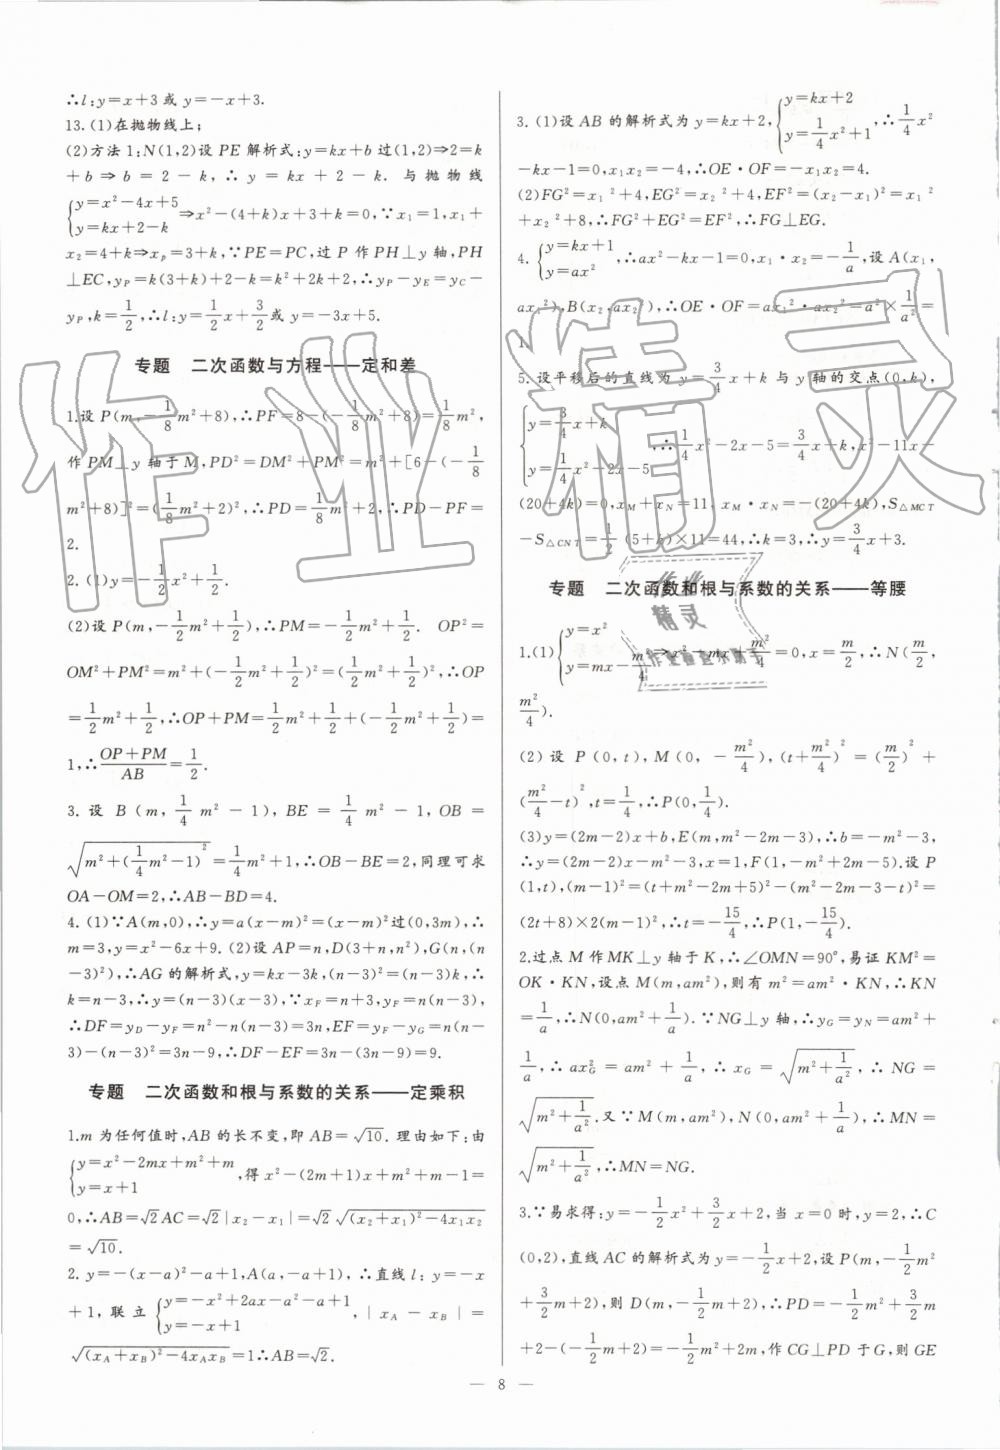 ∴l:y=x+3或y=-x+3.
13.(1)在抛物线上;
(2)方法1:N(1,2)设PE解析式:y=kx+b过(1,2)⇒2=k
+b⇒b=2-k,∴y=kx+2-k.与抛物线
{y=x²-4x+5 y=kx+2-k ⇒x²-(4+k)x+3+k=0,∵x₁=1,x₁+
x₂=4+k⇒xₚ=3+k,∵PE=PC,过P作PH⊥y轴,PH
⊥EC,y_P=k(3+k)+2-k=k²+2k+2,∴y_P-y_E=y_C-
y_P,k=1/2,∴l:y=1/2x+3/2或y=-3x+5.
专题 二次函数与方程——定和差
1.设P(m,-1/8m²+8),∴PF=8-(-1/8m²+8)=1/8m²,
作PM⊥y轴于M,PD²=DM²+PM²=m²+[6-(-1/8
m²+8)]²=(1/8m²+2)²,∴PD=1/8m²+2,∴PD-PF=
2.
2.(1)y=-1/2x²+1/2.
(2)设P(m,-1/2m²+1/2),∴PM=-1/2m²+1/2. OP²=
OM²+PM²=m²+(-1/2m²+1/2)²=(1/2m²+1/2)²,∴OP
=1/2m²+1/2,∴OP+PM=1/2m²+1/2+(-1/2m²+1/2)=
1,∴(OP+PM)/AB=1/2.
3.设B(m,1/4m²-1),BE=1/4m²-1,OB=
√(m²+(1/4m²-1)²)=1/4m²+1,∴OB-BE=2,同理可求
OA-OM=2,∴AB-BD=4.
4.(1)∵A(m,0),∴y=a(x-m)²=(x-m)²过(0,3m),∴
m=3,y=x²-6x+9.(2)设AP=n,D(3+n,n²),G(n,(n
-3)²),∴AG的解析式,y=kx-3k,(n-3)²=(n-3)k,∴
k=n-3,∴y=(n-3)(x-3),∵x_F=n+3,y_F=n(n-3),
∴DF=y_D-y_F=n²-n(n-3)=3n,EF=y_F-y_G=n(n-
3)-(n-3)²=3n-9,∴DF-EF=3n-(3n-9)=9.
专题 二次函数和根与系数的关系——定乘积
1.m为任何值时,AB的长不变,即AB=√10.理由如下:由
{y=x²-2mx+m²+m y=x+1 ,得x²-(2m+1)x+m²+m-1=
0,∴AB=√2AC=√2|x₂-x₁|=√2√((x₂+x₁)²-4x₁x₂)
=√10.
2.y=-(x-a)²-a+1,A(a,-a+1),∴直线l:y=-x
+1,联立{y=-x²+2ax-a²-a+1 y=-x+1 ,|x_A-x_B|=
√((x_A+x_B)²-4x_Ax_B)=1∴AB=√2.
3.(1)设AB的解析式为y=kx+2,{y=kx+2 y=1/4x²+1 ,∴1/4x²
-kx-1=0,x₁x₂=-4,∴OE·OF=-x₁x₂=4.
(2)FG²=x₁²+4,EG²=x₂²+4,EF²=(x₂-x₁)²=x₁²
+x₂²+8,∴FG²+EG²=EF²,∴FG⊥EG.
4.{y=kx+1 y=ax² ,∴ax²-kx-1=0,x₁·x₂=-1/a,设A(x₁,
ax₁²),B(x₂,ax₂²),∴OE·OF=ax₁²·ax₂²=a²×1/a²=
1.
5.设平移后的直线为y=3/4x+k与y轴的交点(0,k),
{y=3/4x+k y=1/4x²-2x-5 ,∴1/4x²-2x-5=3/4x+k,x²-11x-
(20+4k)=0,x_M+x_N=11,x_M·x_N=-(20+4k),S△MCT
-S△CNT=1/2(5+k)×11=44,∴k=3,∴y=3/4x+3.
专题 二次函数和根与系数的关系——等腰
1.(1){y=x² y=mx-m²/4 ⇒x²-mx+m²/4=0,x=m/2,∴N(m/2,
m²/4).
(2)设P(0,t),M(0,-m²/4),(t+m²/4)²=(m/2)²+
(m²/4-t)²,t=1/4,∴P(0,1/4).
(3)y=(2m-2)x+b,E(m,m²-2m-3),∴b=-m²-3,
∴y=(2m-2)x-m²-3,x=1,F(1,-m²+2m-5).设P
(1,t),(m-1)²=(t+m²-2m+5)²-(m²-2m-3-t)²=
(2t+8)×2(m-1)²,∴t=-15/4,∴P(1,-15/4).
2.过点M作MK⊥y轴于K,∴∠OMN=90°,易证KM²=
OK·KN,设点M(m,am²),则有m²=am²·KN,∴KN
=1/a,∴N(0,am²+1/a).∵NG⊥y轴,∴y_G=y_N=am²+
1/a,∴ax_G²=am²+1/a,∴x_G=√(m²+1/a²),∴NG=
√(m²+1/a²).又∵M(m,am²),N(0,am²+1/a),∴MN=
√(m²+1/a²),∴MN=NG.
3.∵易求得:y=-1/2x²+3/2x+2,当x=0时,y=2,∴C
(0,2),直线AC的解析式为y=-1/2x+2,设P(m,-1/2m²
+3/2m+2),则D(m,-1/2m+2),∴PD=-1/2m²+3/2m
+2-(-1/2m+2)=-1/2m²+2m,作CG⊥PD于G,则GE
— 8 —
作业精灵
作业
精灵
作业检查小助手